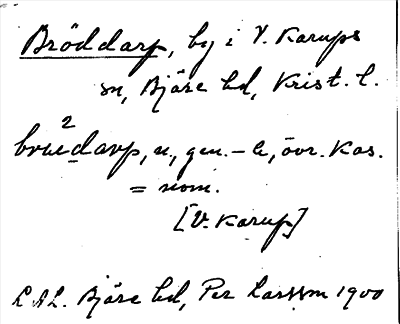 Bröddarp, by i V. Karups
sn, Bjäre hd, Krist. l.
darp, n, gen. – s, övr. kas.
= nom.
[V. Karup]
L A L. Bjäre hd, Per Larsson 1900